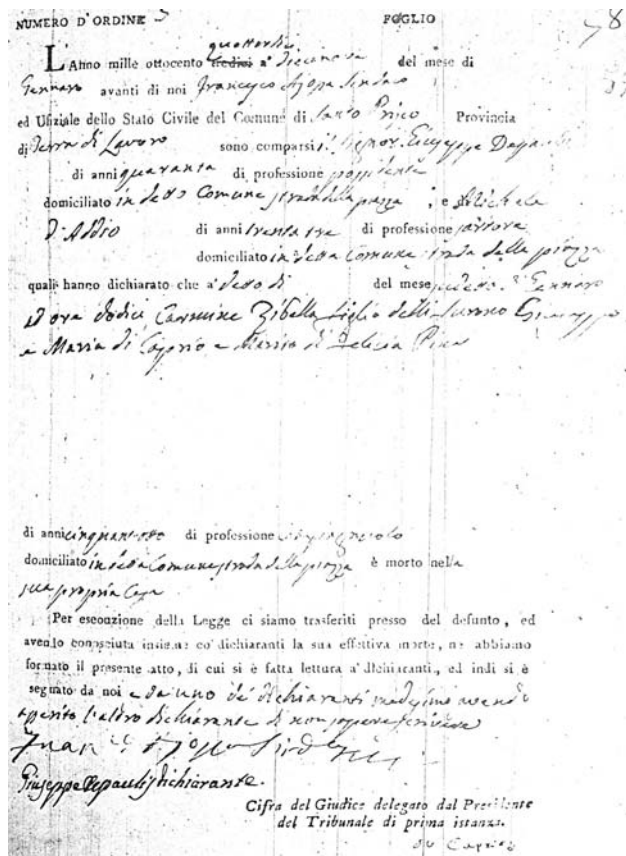 NUMERO D'ORDINE 5 FOGLIO 78
quattordici
L'Anno mille ottocento tredici a' diecinove del mese di
Gennaro avanti di noi Francesco Sindaco
ed Ufiziale dello Stato Civile del Comune di Santo Prisco Provincia
di Terra di Lavoro sono comparsi il Signor Giuseppe
di anni quaranta di professione possidente
domiciliato in detto Comune strada della piazza , e Michele
D'Addio di anni trenta tre di professione sartore
domiciliato in detto Comune strada della piazza
quali hanno dichiarato che a' detto dì del mese di Gennaro
ad ora dodici Carmine Zibella figlio delli furono Giuseppe
e Maria di Caprio e Marito di Felicia
di anni cinquantotto di professione
domiciliato in detto Comune strada della piazza è morto nella
sua propria Casa
Per esecuzione della Legge ci siamo trasferiti presso del defunto, ed
avendo conosciuta insieme co' dichiaranti la sua effettiva morte, ne abbiamo
formato il presente atto, di cui si è fatta lettura a' dichiaranti, ed indi si è
segnato da noi e da uno de' dichiaranti medesimi avendo
asserito l'altro dichiarante di non sapere scrivere
Giuseppe Depaulis dichiarante.
Cifra del Giudice delegato dal Presidente
del Tribunale di prima istanza.
de Caprio